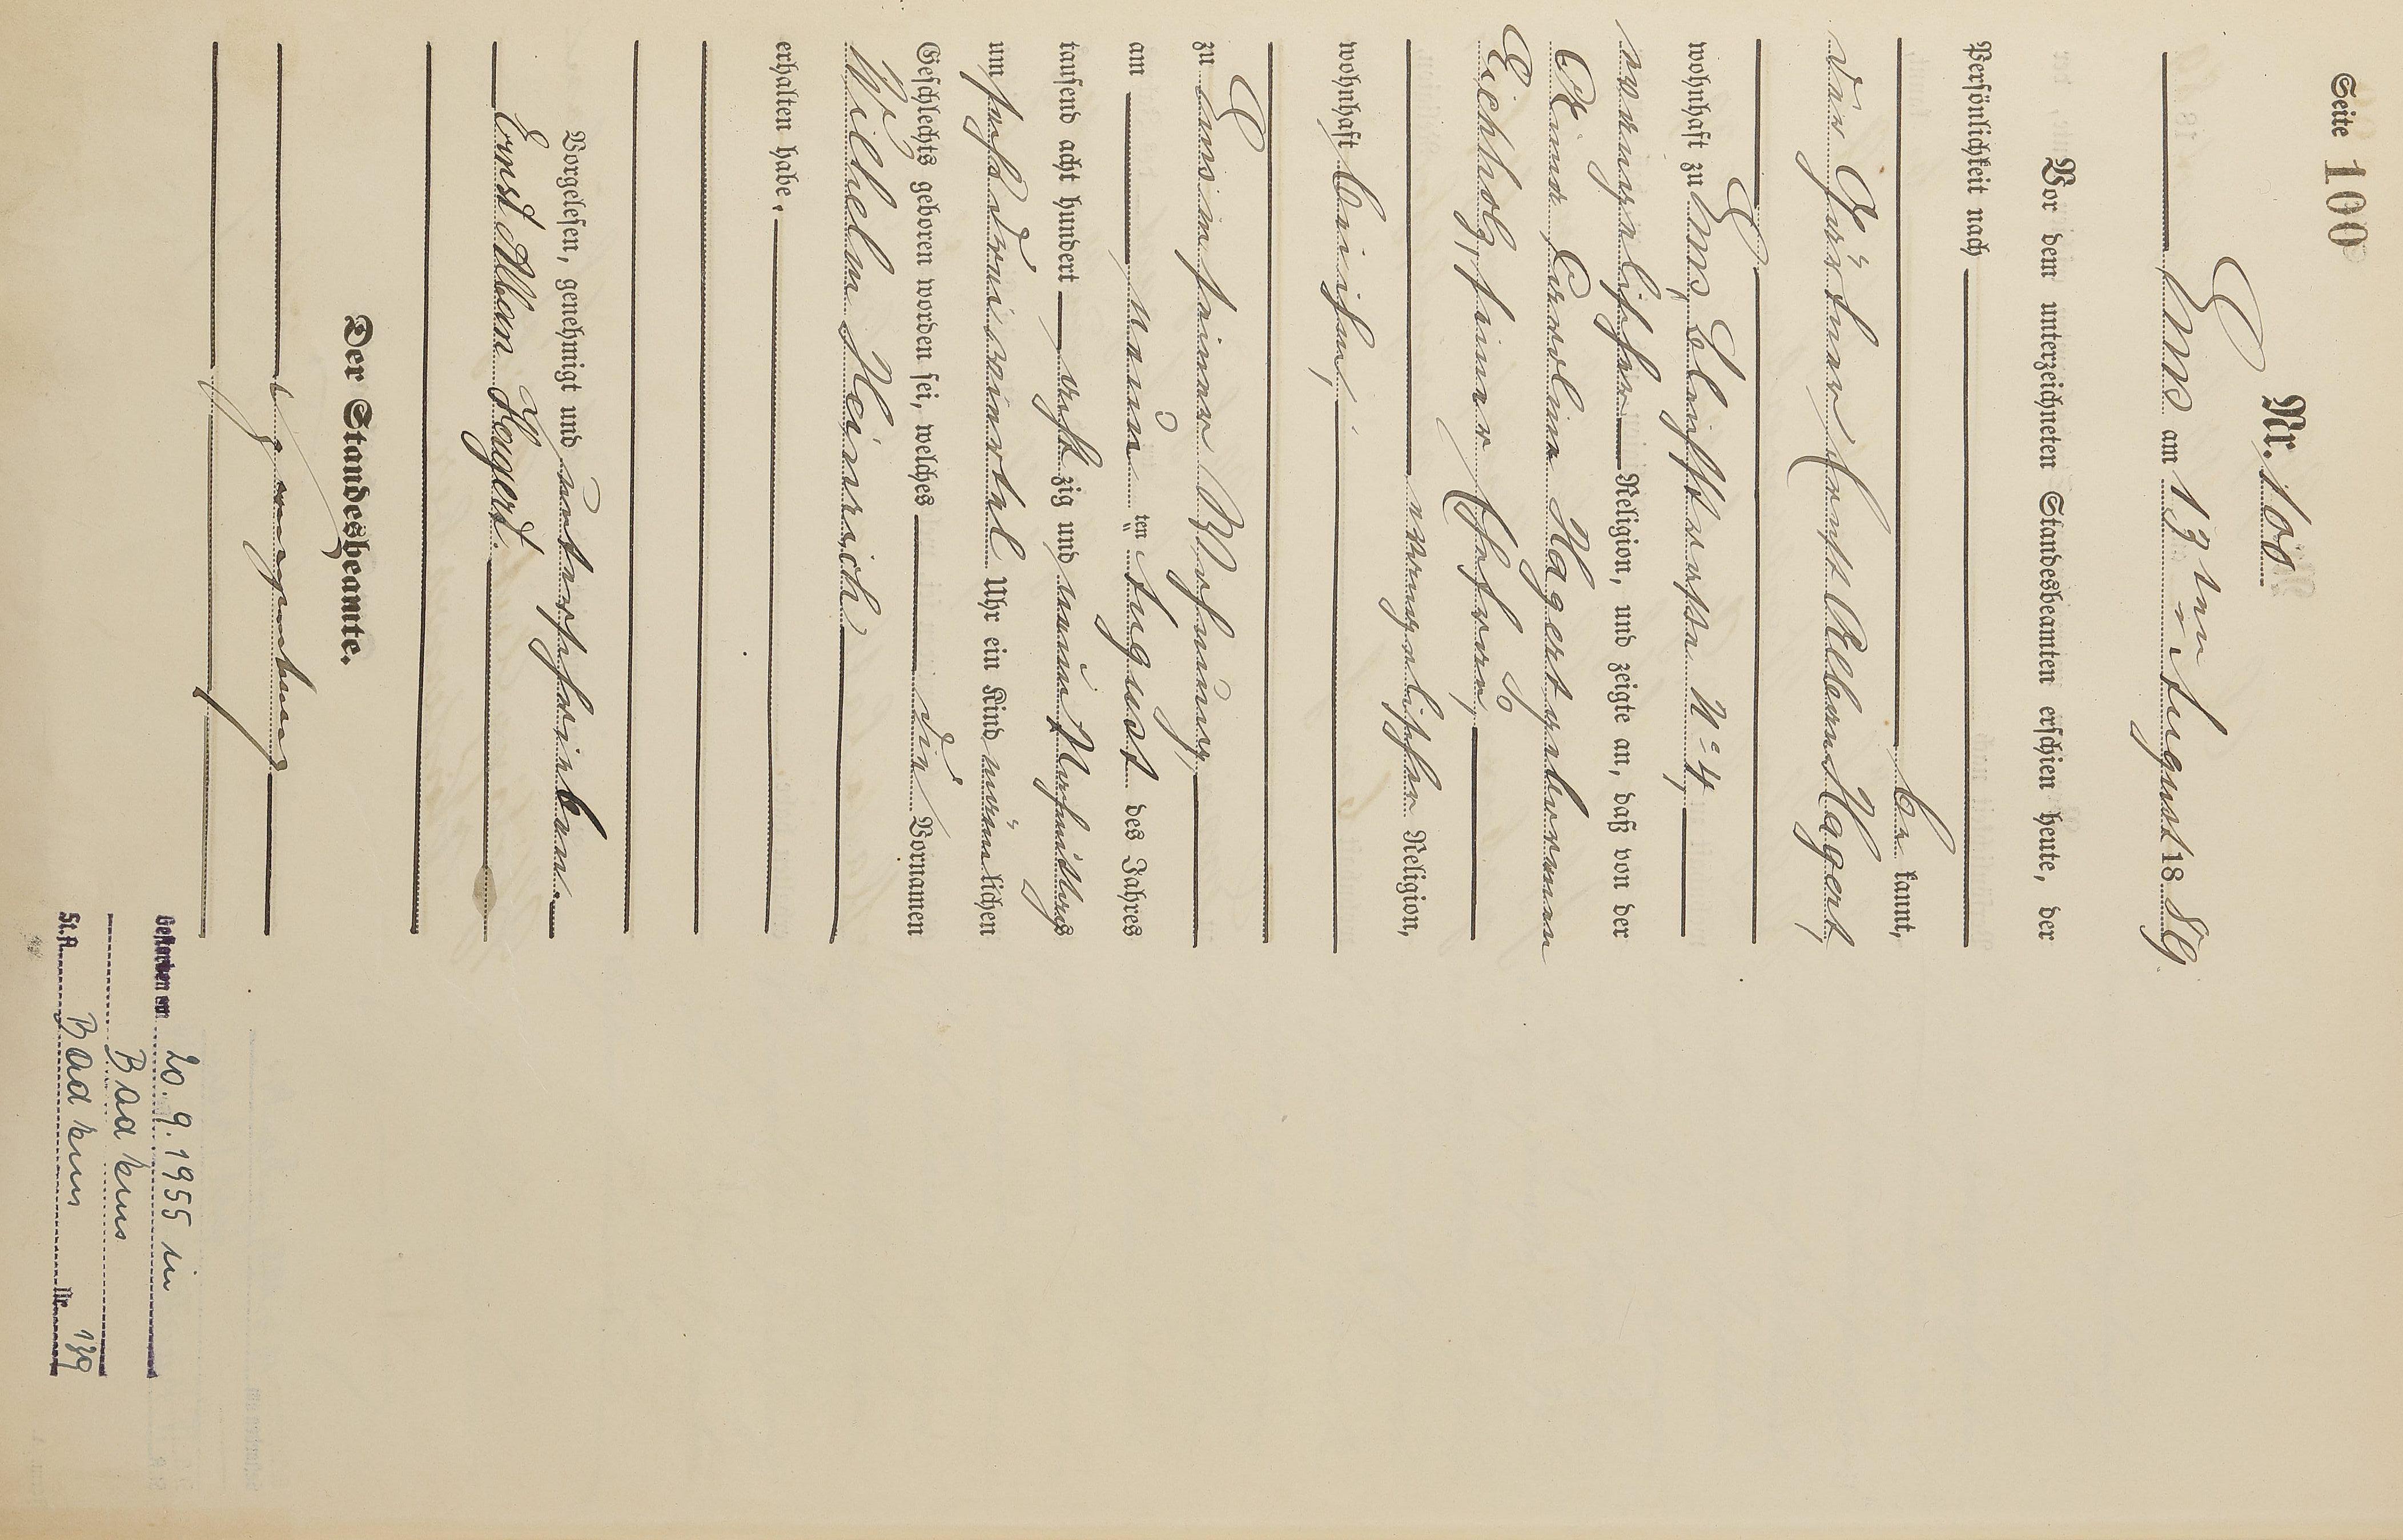 Seite 100
Nr. 100
Ems am 13 ten August 18 89
Vor dem unterzeichneten Standesbeamten erschien heute, der
Persönlichkeit nach
be kannt,
der Gärtner Ernst Alban Hagert,
wohnhaft zu Ems, Bleichstrasse No 4,
evangelischer Religion, und zeigte an, daß von der
Anna Carolina Hagert geborenen
Eichholz, seiner Ehefrau,
evangelischer Religion,
wohnhaft bei ihm,
zu Ems in seiner Wohnung,
am neun ten August des Jahres
tausend acht hundert acht zig und neun Nachmittags
um sechs dreiviertel Uhr ein Kind männ lichen
Geschlechts geboren worden sei, welches die Vornamen
Wilhelm Heinrich
erhalten habe.
Vorgelesen, genehmigt und unterschrieben.
Ernst Alban Hagert.
Der Standesbeamte.
Gestorben am 20.9.1955 in
Bad Ems
St.A. Bad Ems Nr. 139